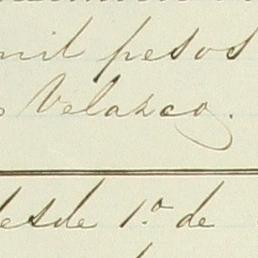 mil pesos
Velazco.
desde 1.º de